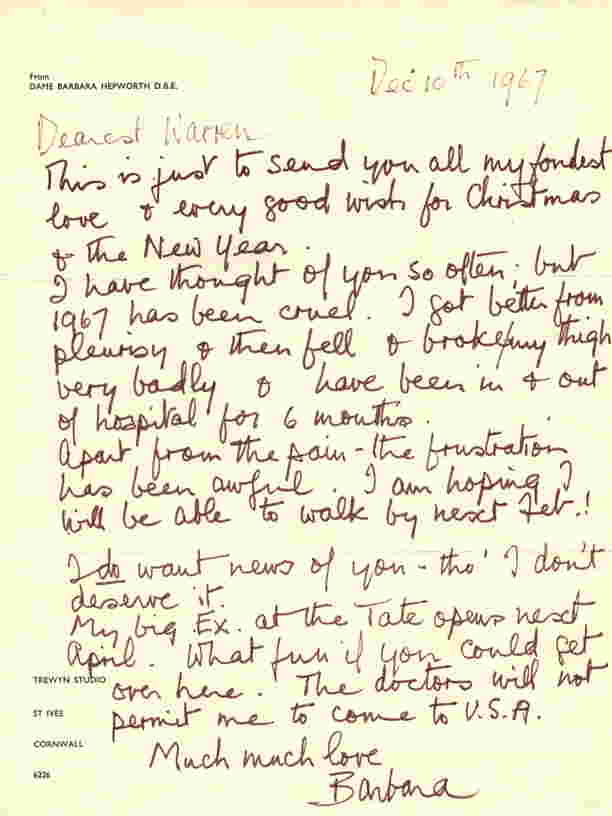 From
DAME BARBARA HEPWORTH D.B.E.
Dec 10th 1967
Dearest Warren
This is just to send you all my fondest
love & every good wish for Christmas
& the New Year.
I have thought of you so often; but
1967 has been cruel. I got better from
pleurisy & then fell & broke my thigh
very badly & have been in & out
of hospital for 6 months.
Apart from the pain - the frustration
has been awful. I am hoping I
will be able to walk by next Feb.!
I do want news of you - tho' I don't
deserve it.
My big Ex. at the Tate opens next
April. What fun if you could get
over here. The doctors will not
permit me to come to U.S.A.
Much much love
Barbara
TREWYN STUDIO
ST IVES
CORNWALL
6226